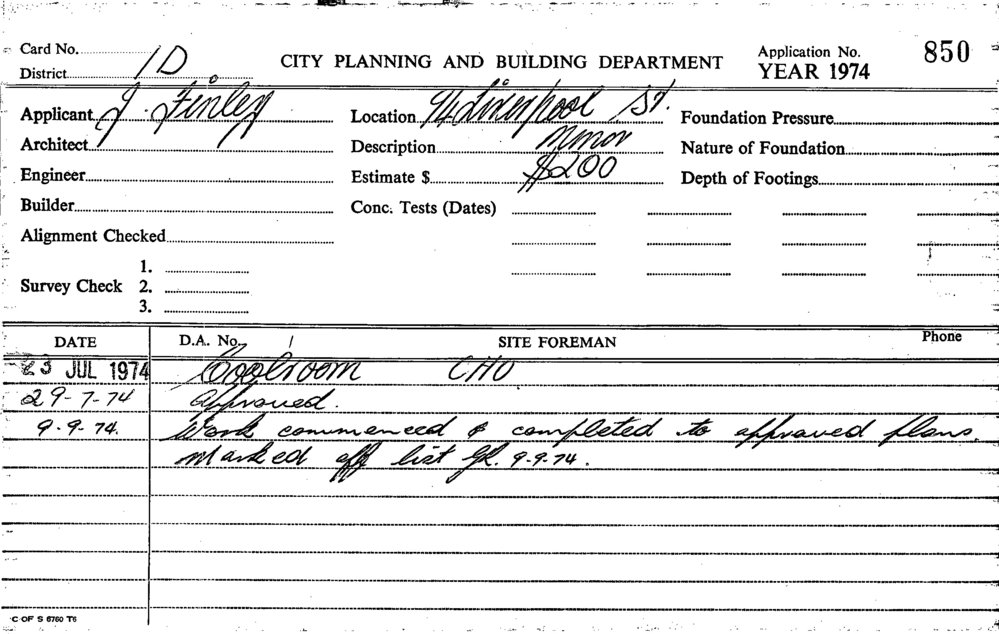 Card No. 1D
District
CITY PLANNING AND BUILDING DEPARTMENT
Application No. 850
YEAR 1974
Applicant J. Finley
Location 94 Liverpool St.
Foundation Pressure
Architect
Description Minor
Nature of Foundation
Engineer
Estimate $ $200
Depth of Footings
Builder
Conc. Tests (Dates)
Alignment Checked
1.
Survey Check 2.
3.
DATE D.A. No. SITE FOREMAN Phone
23 JUL 1974 Coolroom CHO
29-7-74 Approved.
9-9-74. Work commenced & completed to approved plans.
Marked off list 9-9-74.
C OF S 6760 T6